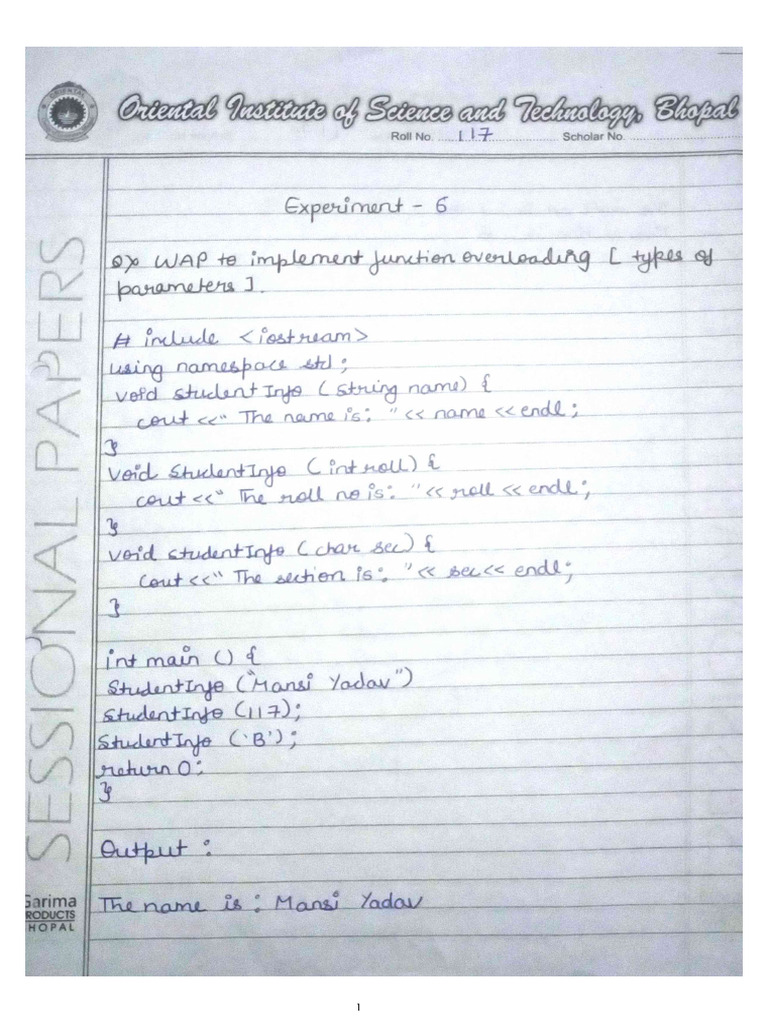 Oriental Institute of Science and Technology, Bhopal
Roll No. 117 Scholar No.
Experiment - 6
Q> WAP to implement function overloading [ types of
parameters ].
# include <iostream>
using namespace std;
void studentInfo (string name) {
cout <<" The name is: "<< name << endl;
}
void StudentInfo (int roll) {
cout <<" The roll no is: "<< roll << endl;
}
void studentInfo (char sec) {
cout <<" The section is: "<< sec << endl;
}
int main () {
StudentInfo ("Mansi Yadav")
StudentInfo (117);
StudentInfo ('B');
return 0;
}
Output :
The name is : Mansi Yadav
SESSIONAL PAPERS
Garima
RODUCTS
HOPAL
1